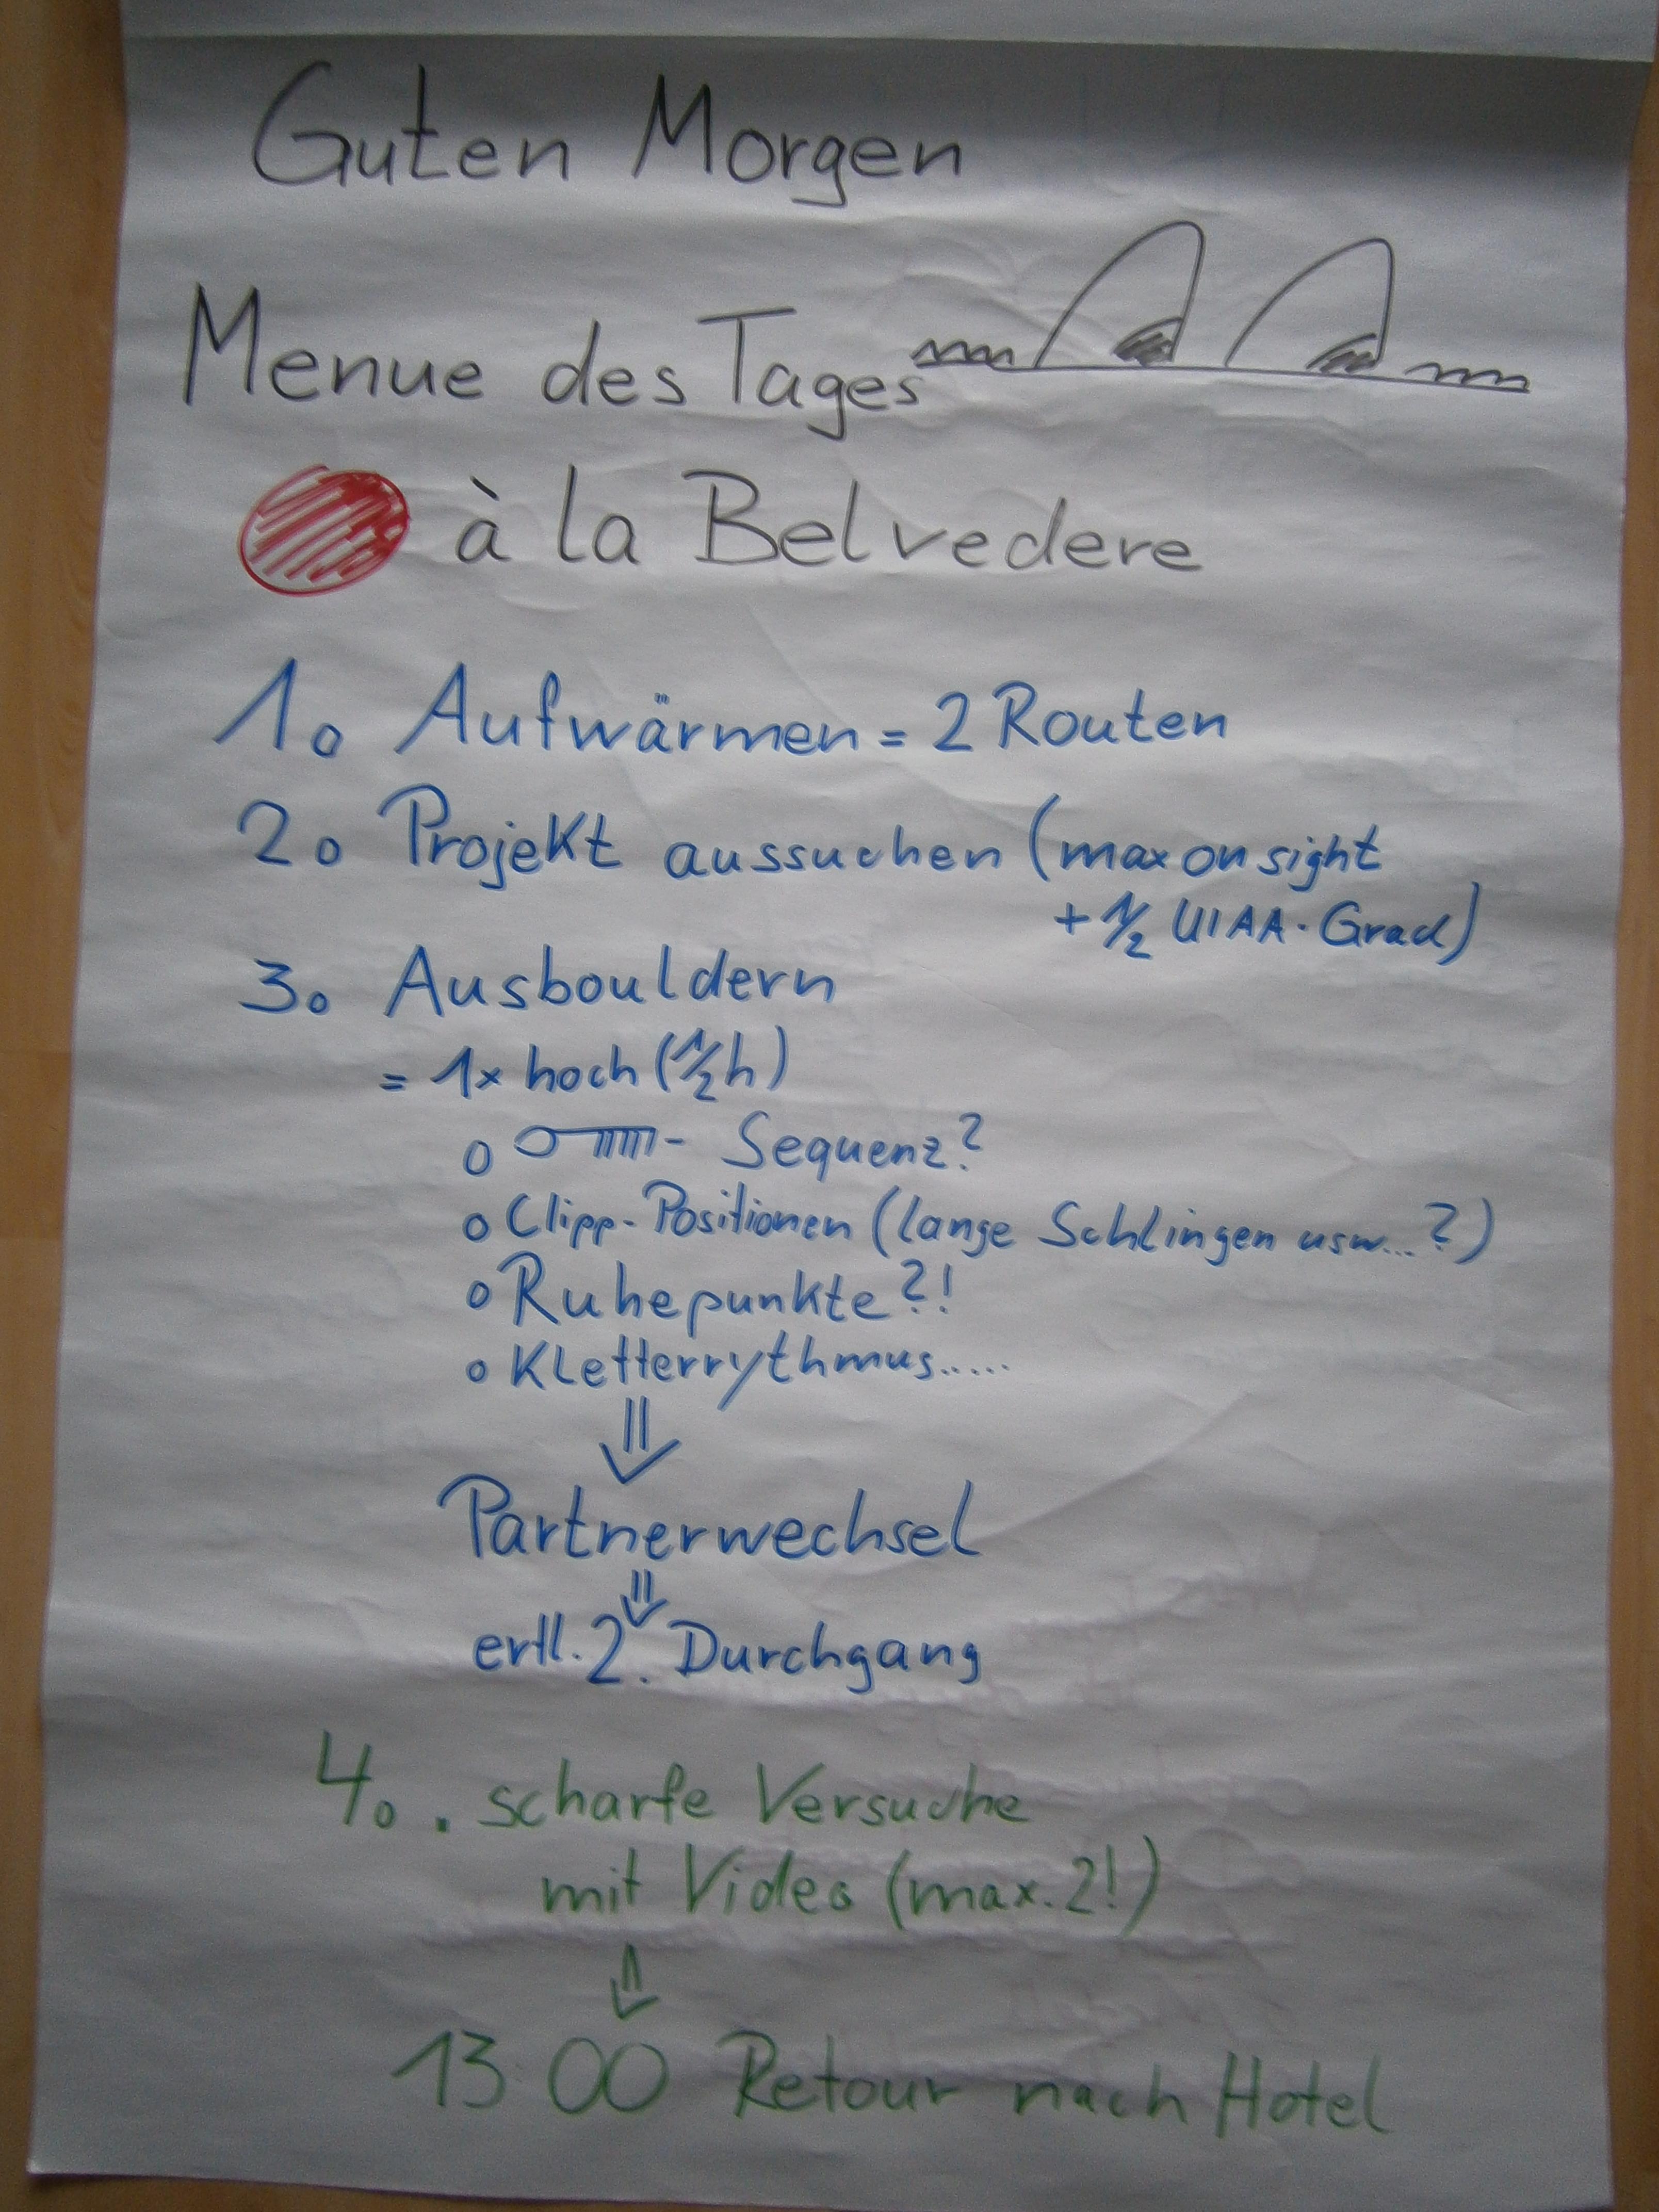 Guten Morgen
Menue des Tages
à la Belvedere
1. Aufwärmen = 2 Routen
2. Projekt aussuchen (max on sight
+ 1/2 UIAA-Grad)
3. Ausbouldern
= 1x hoch (1/2 h)
o - Sequenz?
o Clipp-Positionen (lange Schlingen usw...?)
o Ruhepunkte?!
o Kletterrythmus.....
⇓
Partnerwechsel
⇓
ertl. 2. Durchgang
4. . scharfe Versuche
mit Video (max. 2!)
⇓
13 00 Retour nach Hotel